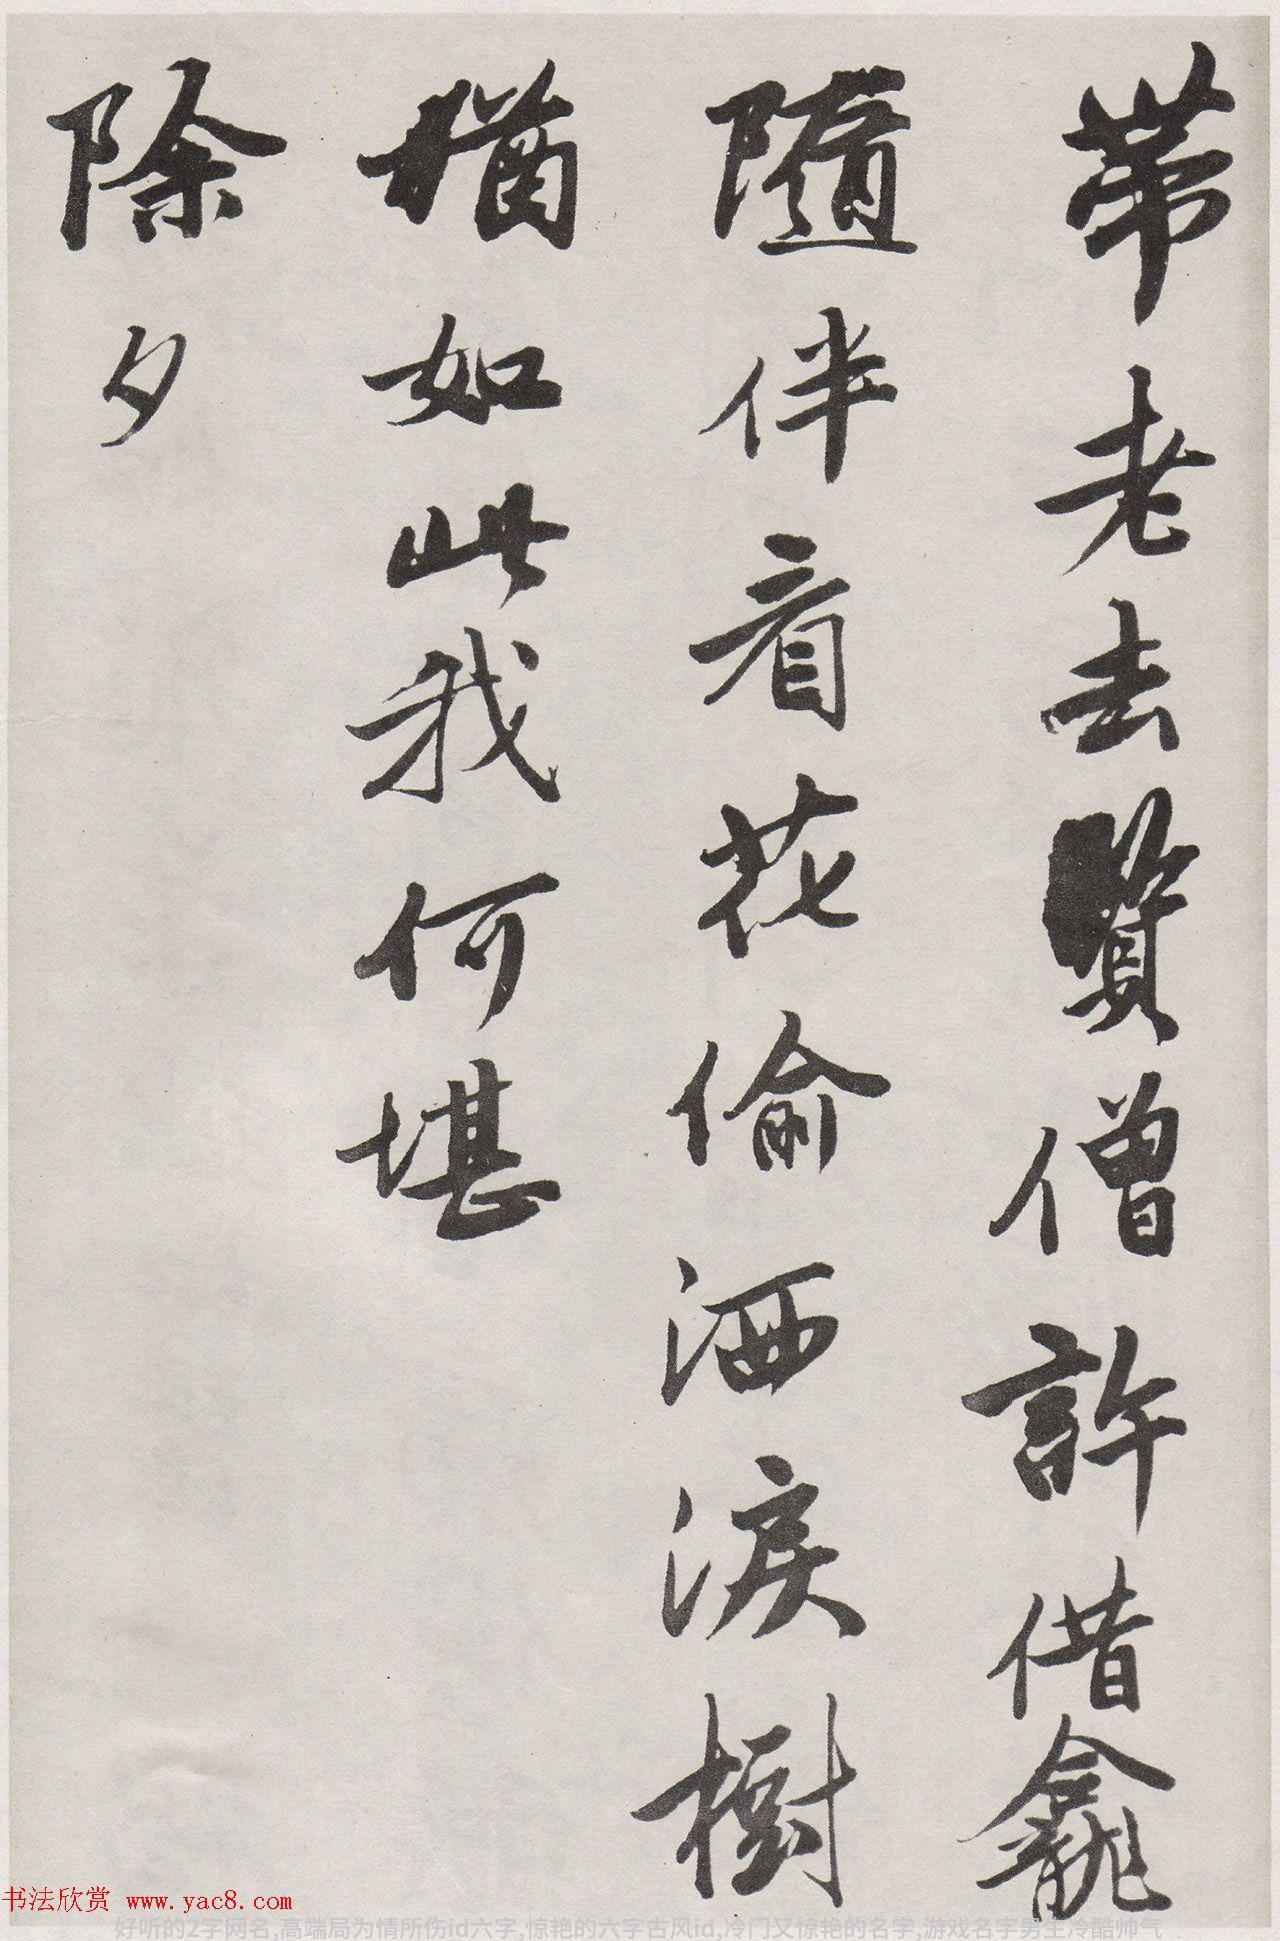 帶老去賢僧許借龕
隨伴看花偷洒淚樹
猶如此我何堪
除夕
书法欣赏 www.yac8.com
好听的2字网名,高端局为情所伤id六字,惊艳的六字古风id,冷门又惊艳的名字,游戏名字男生冷酷帅气